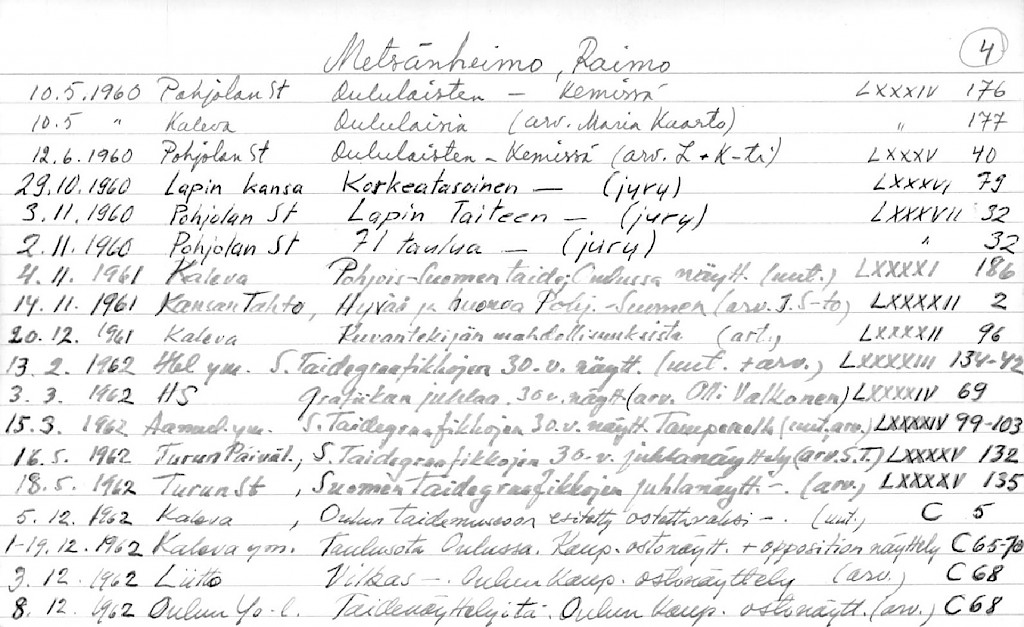 Metsänheimo, Raimo 4
10.5.1960 Pohjolan St Oululaisten – Kemissä LXXXIV 176
10.5 " Kaleva Oululaisia (arv. Maria Kaarto) " 177
12.6.1960 Pohjolan St Oululaisten – Kemissä (arv. L+K-ti) LXXXV 40
29.10.1960 Lapin kansa Korkeatasoinen — (jyry) LXXXVI 79
3.11.1960 Pohjolan St Lapin Taiteen — (jury) LXXXVII 32
2.11.1960 Pohjolan St 71 taulua — (jury) " 32
4.11.1961 Kaleva Pohjois-Suomen taide, Oulussa näytt. (uut.) LXXXXI 186
14.11.1961 Kansan Tahto, Hyvää ja huonoa Pohj.-Suomen (arv. J. S-to) LXXXXII 2
20.12.1961 Kaleva Kuvantekijän mahdollisuuksista (art.) LXXXXII 96
13.2.1962 Hbl ym. S. Taidegraafikkojen 30-v. näytt. (uut. + arv.) LXXXXIII 134-42
3.3.1962 HS Grafiikan juhlaa. 30 v. näytt (arv. Olli Valkonen) LXXXXIV 69
15.3.1962 Aamul. ym. S. Taidegraafikkojen 30.v. näytt. Tampereella (uut, arv.) LXXXXIV 99-103
16.5.1962 Turun Päiväl., S. Taidegraafikkojen 30-v. juhlanäyttely (arv. S.T.) LXXXXV 132
18.5.1962 Turun St, Suomen Taidegraafikkojen juhlanäytt –. (arv.) LXXXXV 135
5.12.1962 Kaleva, Oulun taidemuseoon esitetty ostettavaksi –. (uut.) C 5
1-19.12.1962 Kaleva ym. Taulusota Oulussa. Kaup. ostonäytt. + opposition näyttely C 65-70
3.12.1962 Liitto Vilkas –. Oulun Kaup. ostonäyttely (arv.) C 68
8.12.1962 Oulun Yo-l. Taidenäyttelyitä. Oulun Kaup. ostonäytt. (arv.) C 68